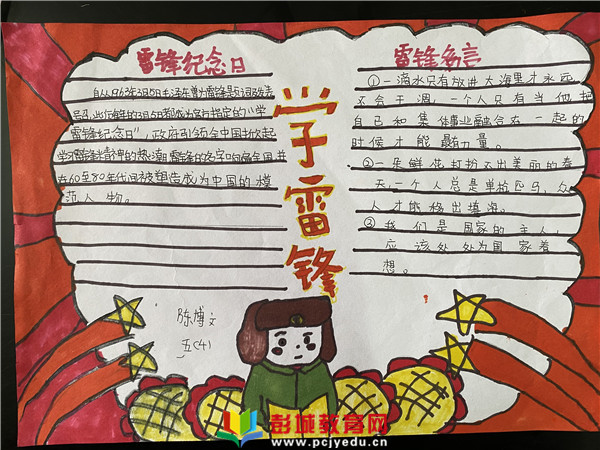 雷锋纪念日
自从1963年3月5日毛泽东为雷锋题词发表
后,以后每年的3月5日都成为官方指定的“学
雷锋纪念日”,政府引领全中国掀起
学习雷锋精神的热潮 雷锋的名字响遍全国,并
在60至80年代间被塑造成为中国的模
范人物。
学雷锋
雷锋名言
①一滴水只有放进大海里才永远
不会干涸,一个人只有当他把
自己和集体事业融合在一起的
时候才能最有力量。
②一朵鲜花打扮不出美丽的春
天,一个人总是单枪匹马,众
人才能移山填海。
③我们是国家的主人,
应该处处为国家着
想。
陈博文
五(4)
彭城教育网
www.pcjyedu.cn